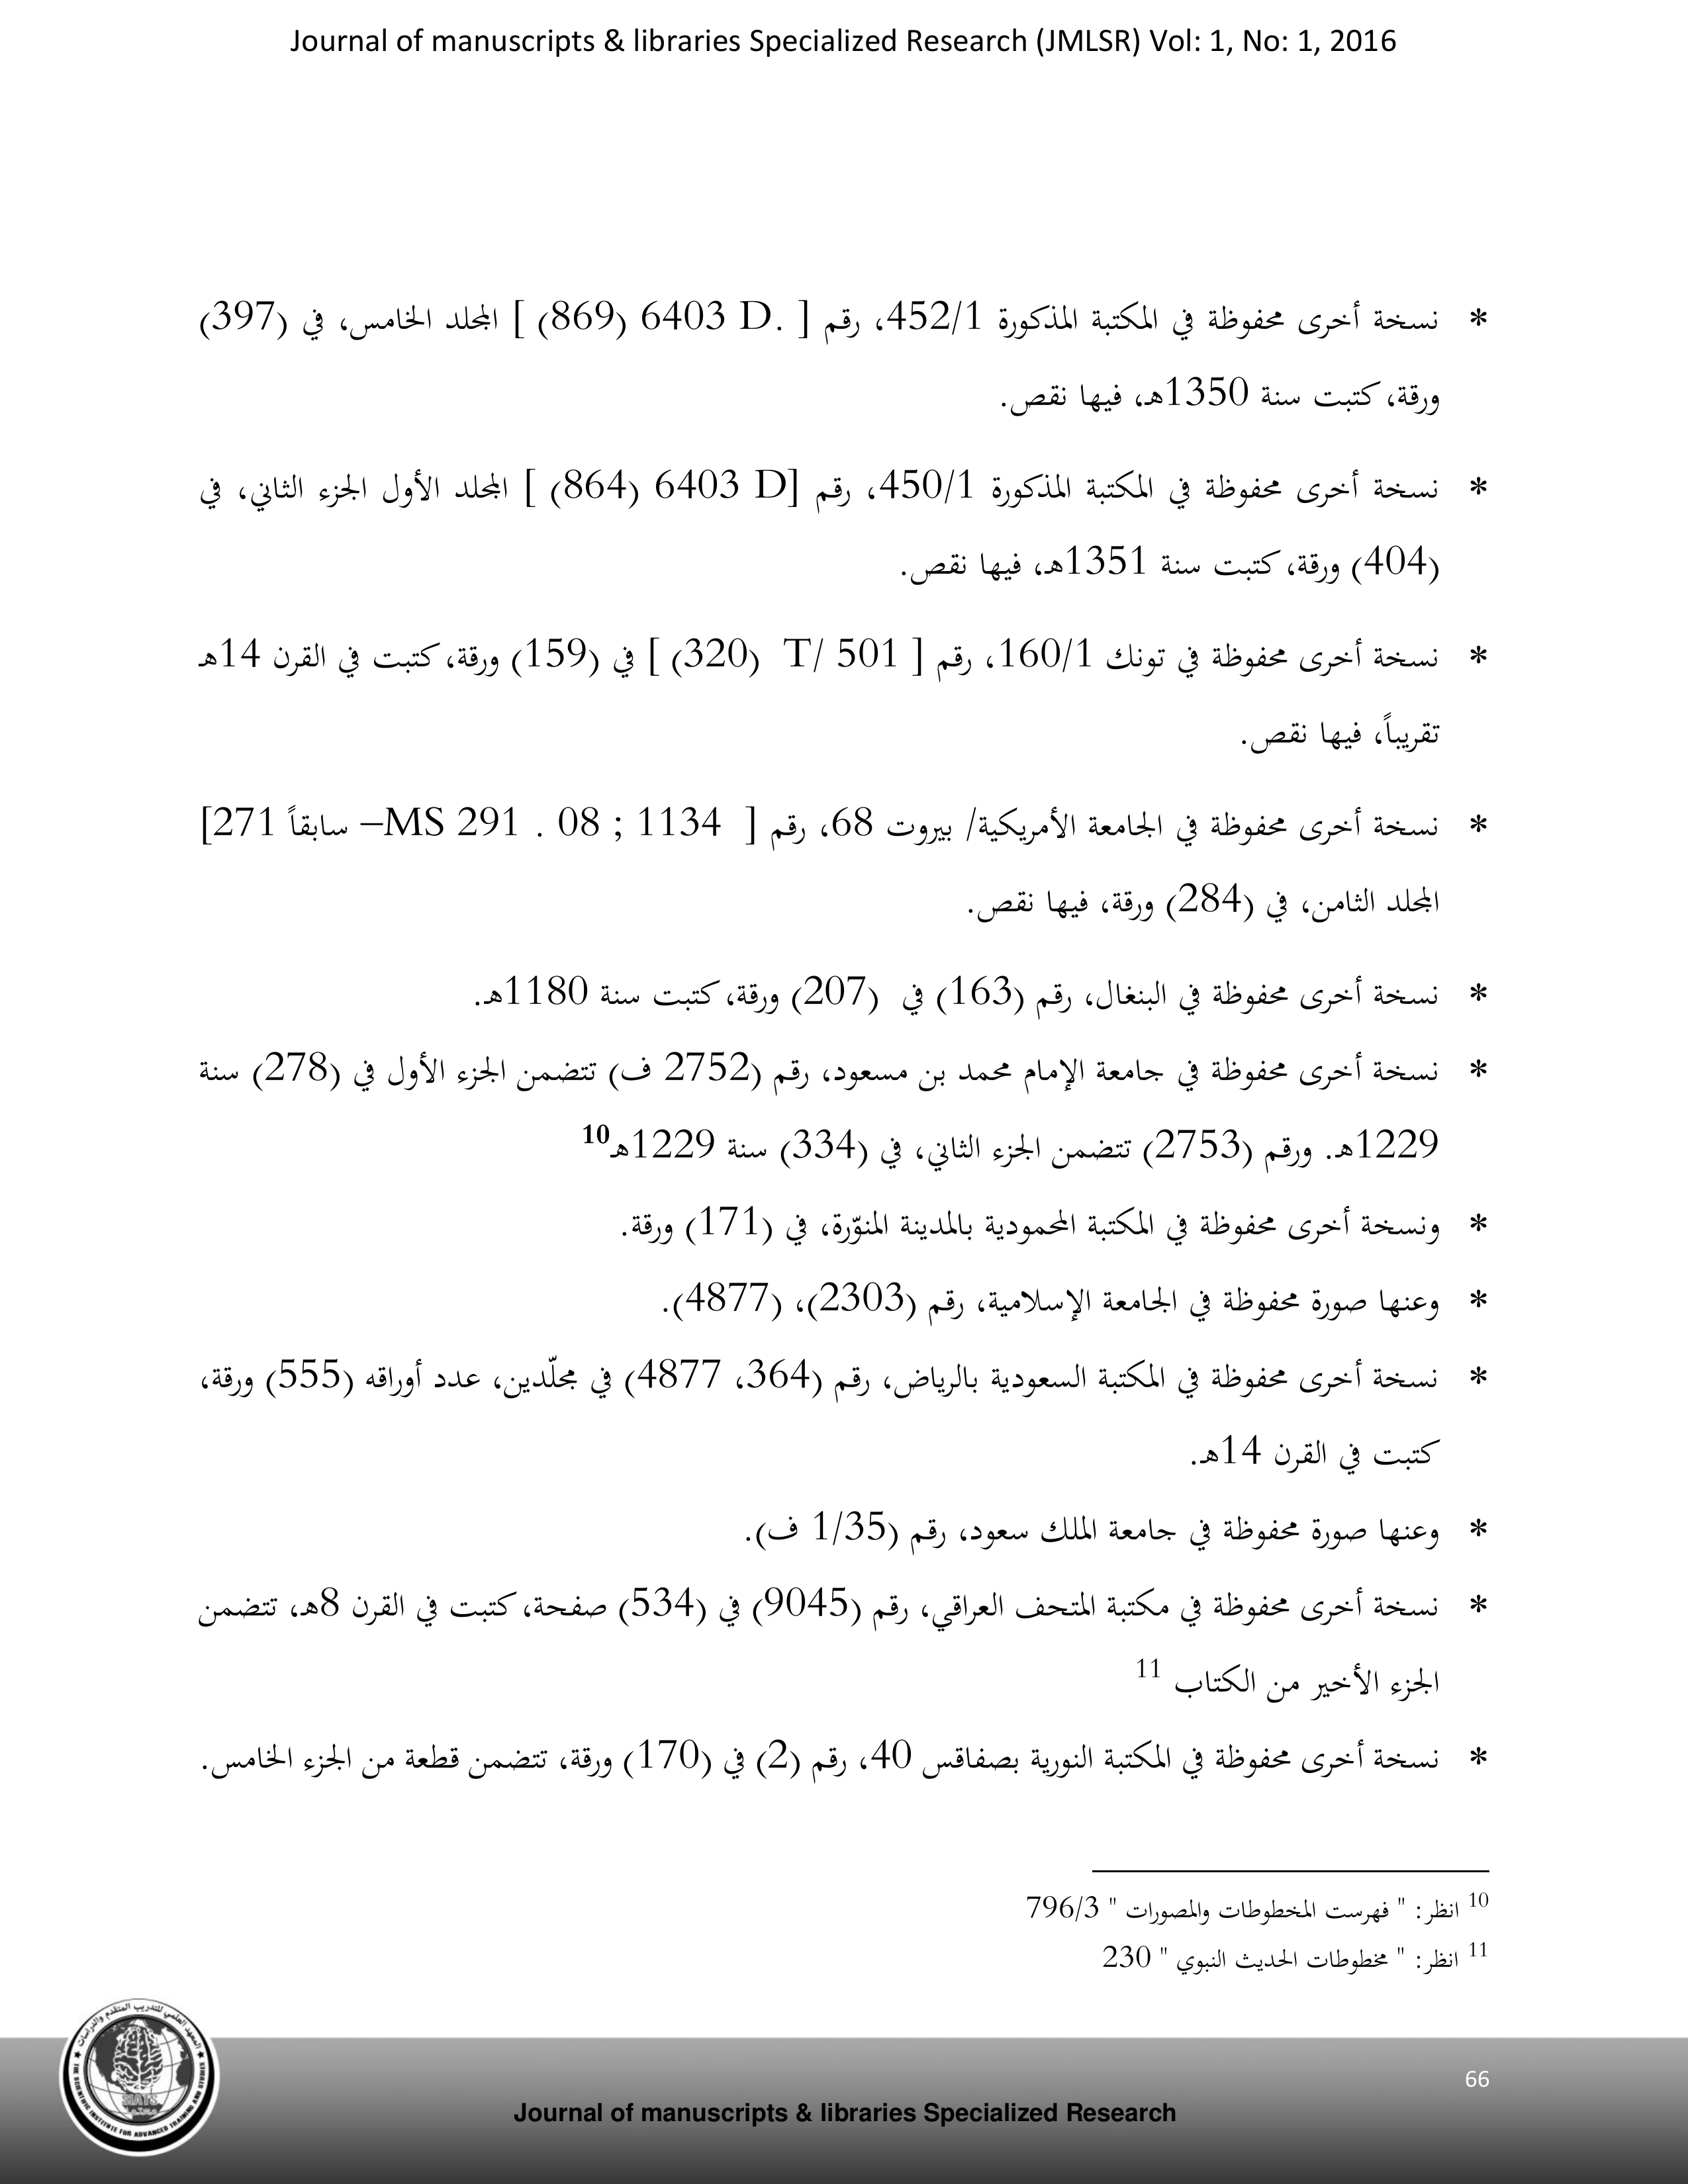 Journal of manuscripts & libraries Specialized Research (JMLSR) Vol: 1, No: 1, 2016
* نسخة أخرى محفوظة في المكتبة المذكورة 452/1، رقم [ .6403 D (869) ] المجلد الخامس، في (397)
ورقة، كتبت سنة 1350هـ، فيها نقص.
* نسخة أخرى محفوظة في المكتبة المذكورة 450/1، رقم [6403 D (864) ] المجلد الأول الجزء الثاني، في
(404) ورقة، كتبت سنة 1351هـ، فيها نقص.
* نسخة أخرى محفوظة في تونك 160/1، رقم [ T/ 501 (320) ] في (159) ورقة، كتبت في القرن 14هـ
تقريباً، فيها نقص.
* نسخة أخرى محفوظة في الجامعة الأمريكية/ بيروت 68، رقم [ MS 291 . 08 ; 1134– سابقاً 271]
المجلد الثامن، في (284) ورقة، فيها نقص.
* نسخة أخرى محفوظة في البنغال، رقم (163) في (207) ورقة، كتبت سنة 1180هـ.
* نسخة أخرى محفوظة في جامعة الإمام محمد بن مسعود، رقم (2752 ف) تتضمن الجزء الأول في (278) سنة
1229هـ. ورقم (2753) تتضمن الجزء الثاني، في (334) سنة 1229هـ10
* ونسخة أخرى محفوظة في المكتبة المحمودية بالمدينة المنوّرة، في (171) ورقة.
* وعنها صورة محفوظة في الجامعة الإسلامية، رقم (2303)، (4877).
* نسخة أخرى محفوظة في المكتبة السعودية بالرياض، رقم (364، 4877) في مجلّدين، عدد أوراقه (555) ورقة،
كتبت في القرن 14هـ.
* وعنها صورة محفوظة في جامعة الملك سعود، رقم (1/35 ف).
* نسخة أخرى محفوظة في مكتبة المتحف العراقي، رقم (9045) في (534) صفحة، كتبت في القرن 8هـ، تتضمن
الجزء الأخير من الكتاب 11
* نسخة أخرى محفوظة في المكتبة النورية بصفاقس 40، رقم (2) في (170) ورقة، تتضمن قطعة من الجزء الخامس.
10 انظر: " فهرست المخطوطات والمصورات " 796/3
11 انظر: " مخطوطات الحديث النبوي " 230
المعهد العلمي للتدريب المتقدم والدراسات
THE SCIENTIFIC INSTITUTE FOR ADVANCED TRAINING AND STUDIES
SIATS
66
Journal of manuscripts & libraries Specialized Research